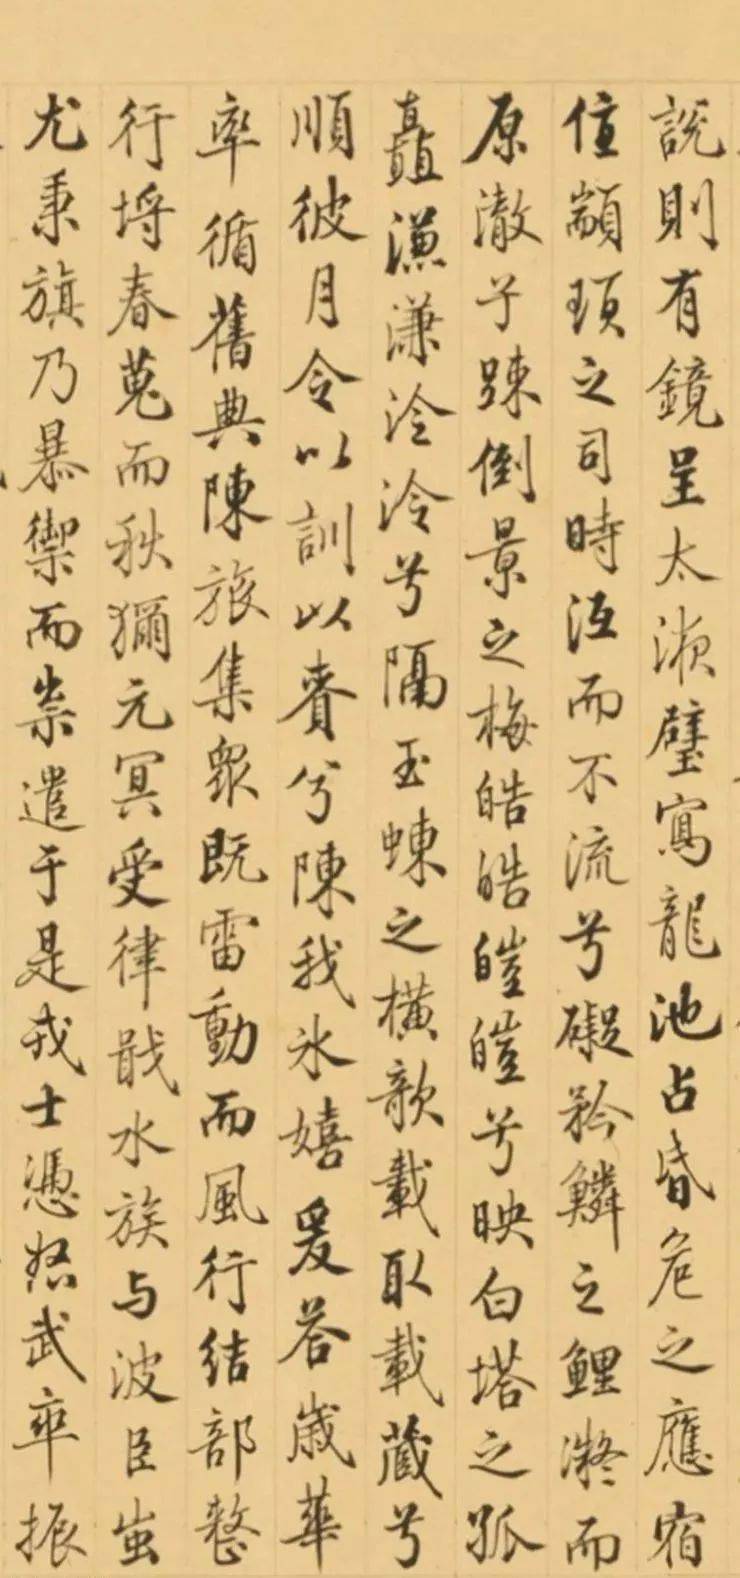 說則有鏡呈太液璧寫龍池占昏危之應宿
值顓頊之司時沍而不流兮礙矜鱗之鯉凝而
原澈兮踈倒景之梅皓皓皚皚兮映白塔之孤
矗溓溓泠泠兮隔玉蝀之橫歌載取載藏兮
順彼月令以訓以賚兮陳我冰嬉爰荅歲華
率循舊典陳旅集衆既雷動而風行結部整
行埒春蒐而秋獮元冥受律戢水族与波臣蚩
尤秉旗乃暴禦而祟遣于是戎士憑怒武卒振